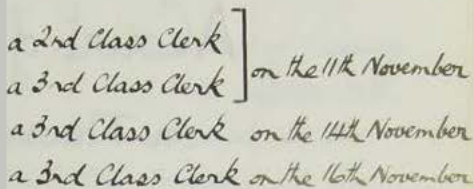 a 2nd Class Clerk
a 3rd Class Clerk
on the 11th November
a 3rd Class Clerk on the 14th November
a 3rd Class Clerk on the 16th November